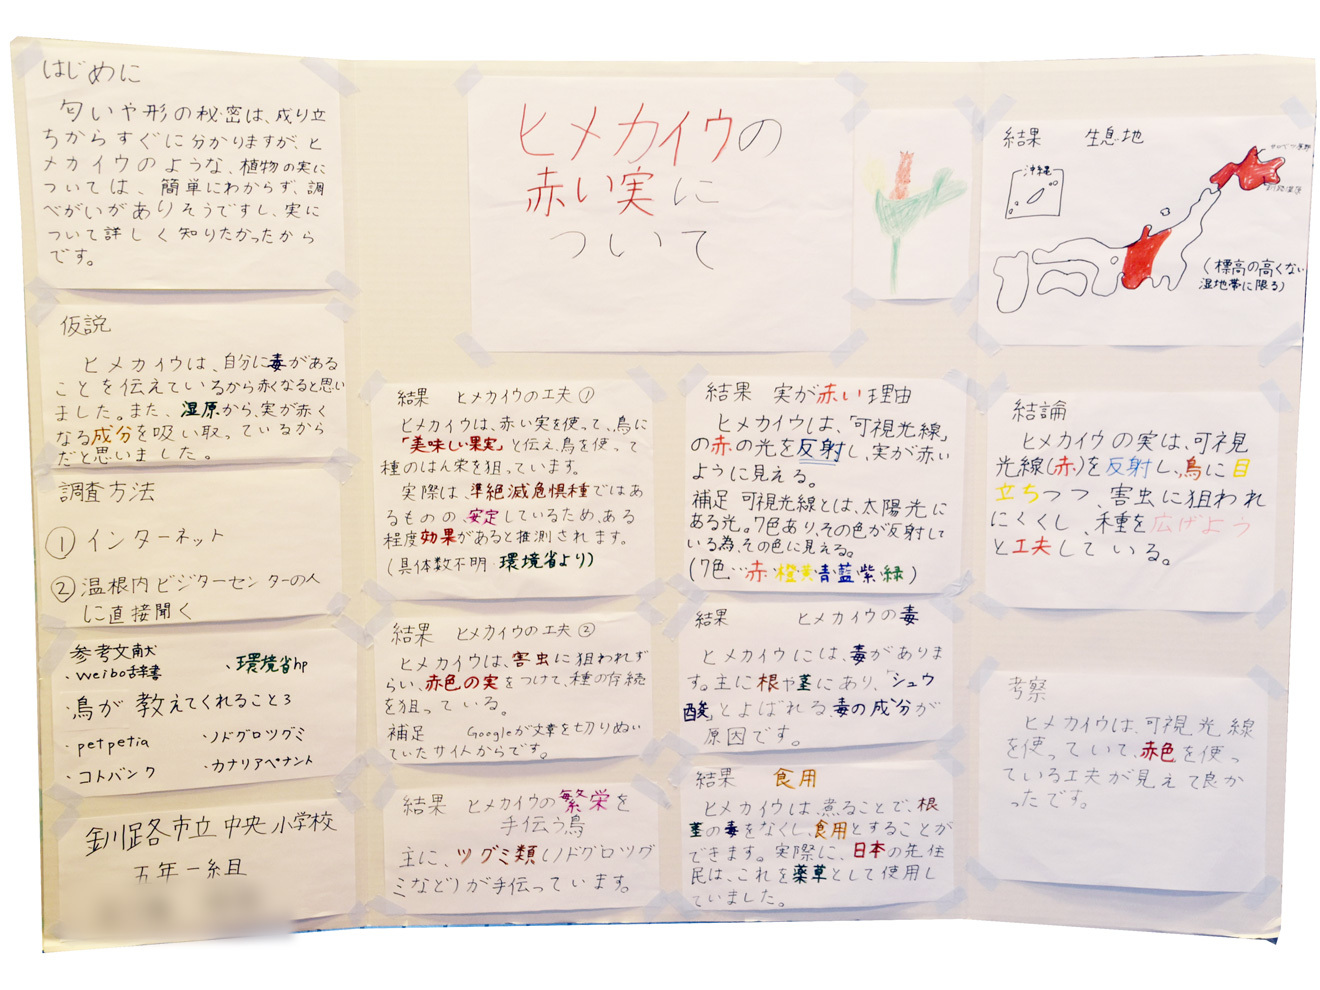 はじめに
匂いや形の秘密は、成り立
ちからすぐに分かりますが、ヒ
メカイウのような、植物の実に
ついては、簡単にわからず、調
べがいがありそうですし、実に
ついて詳しく知りたかったから
です。
仮説
ヒメカイウは、自分に毒がある
ことを伝えているから赤くなると思い
ました。また、湿原から、実が赤く
なる成分を吸い取っているから
だと思いました。
調査方法
① インターネット
② 温根内ビジターセンターの人
に直接聞く
参考文献
・weibo辞書
・環境省hp
・鳥が教えてくれること3
・petpetia
・ノドグロツグミ
・コトバンク
・カナリアペナント
釧路市立中央小学校
五年一組
ヒメカイウの
赤い実に
ついて
結果 ヒメカイウの工夫①
ヒメカイウは、赤い実を使って、鳥に
「美味しい果実」と伝え、鳥を使って
種のはん栄を狙っています。
実際は、準絶滅危惧種ではあ
るものの、安定しているため、ある
程度効果があると推測されます。
(具体数不明 環境省より)
結果 ヒメカイウの工夫②
ヒメカイウは、害虫に狙われず
らい、赤色の実をつけて、種の存続
を狙っている。
補足 Googleが文章を切りぬい
ていたサイトからです。
結果 ヒメカイウの繁栄を
手伝う鳥
主に、ツグミ類(ノドグロツグ
ミなど)が手伝っています。
結果 実が赤い理由
ヒメカイウは、「可視光線」
の赤の光を反射し、実が赤い
ように見える。
補足 可視光線とは、太陽光に
ある光。7色あり、その色が反射して
いる為、その色に見える。
(7色…赤・橙・黄・青・藍・紫・緑)
結果 ヒメカイウの毒
ヒメカイウには、毒がありま
す。主に根や茎にあり、「シュウ
酸」とよばれる毒の成分が
原因です。
結果 食用
ヒメカイウは、煮ることで、根
茎の毒をなくし、食用とすることが
できます。実際に、日本の先住
民は、これを薬草として使用し
ていました。
結果 生息地
沖縄
(標高の高くない
湿地帯に限る)
結論
ヒメカイウの実は、可視
光線(赤)を反射し、鳥に目
立ちつつ、害虫に狙われ
にくくし、種を広げよう
と工夫している。
考察
ヒメカイウは、可視光線
を使っていて、赤色を使っ
ている工夫が見えて良か
ったです。